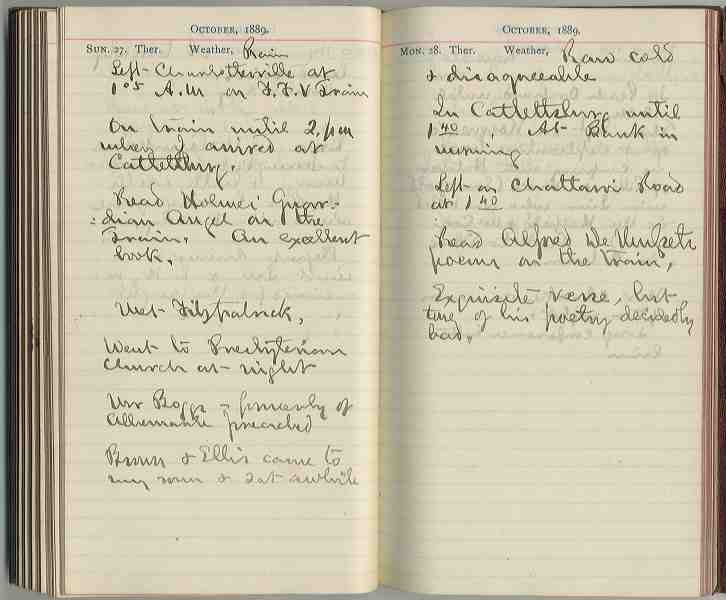 October, 1889.
Sun. 27. Ther. Weather, Rain
Left Charlottesville at
1 05 A.M on F.F.V Train
On train until 2. pm
when I arrived at
Catlettsburg.
Read Holmes' Guar-
:dian Angel on the
Train. An excellent
book.
Met Fitzpatrick,
Went to Presbyterian
Church at night
Mr Boggs – formerly of
Albemarle preached
Brown & Ellis came to
my room & sat awhile
October, 1889.
Mon. 28. Ther. Weather, Raw cold
& disagreeable
In Catlettsburg until
1 40 At Bank in
morning
Left on Chattaroi Road
at 1 40
Read Alfred De Mussets
poems on the train,
Exquisite verse, but
tone of his poetry decidedly
bad.